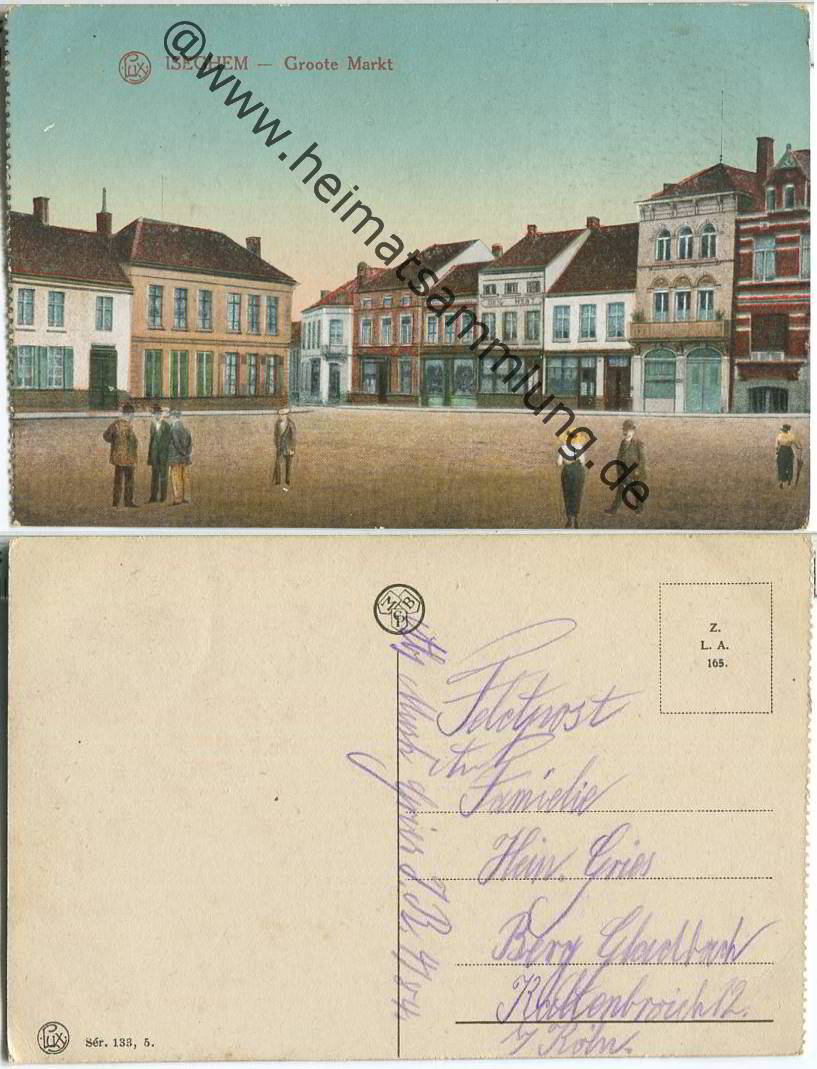 Lux
ISEGHEM — Groote Markt
@www.heimatsammlung.de
M B
Z.
L. A.
165.
Feldpost
An
Familie
Hein. Gries
Berg Gladbach
Kaltenbroich 12.
b/ Köln.
Lux
Sér. 133, 5.